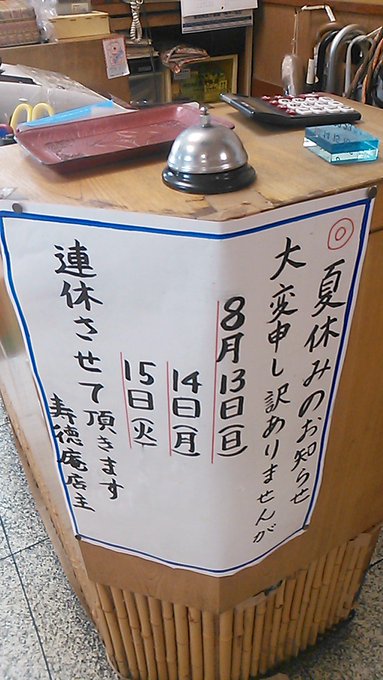 ◎夏休みのお知らせ
大変申し訳ありませんが
8月13日(日)
14日(月)
15日(火)
連休させて頂きます
寿徳庵店主